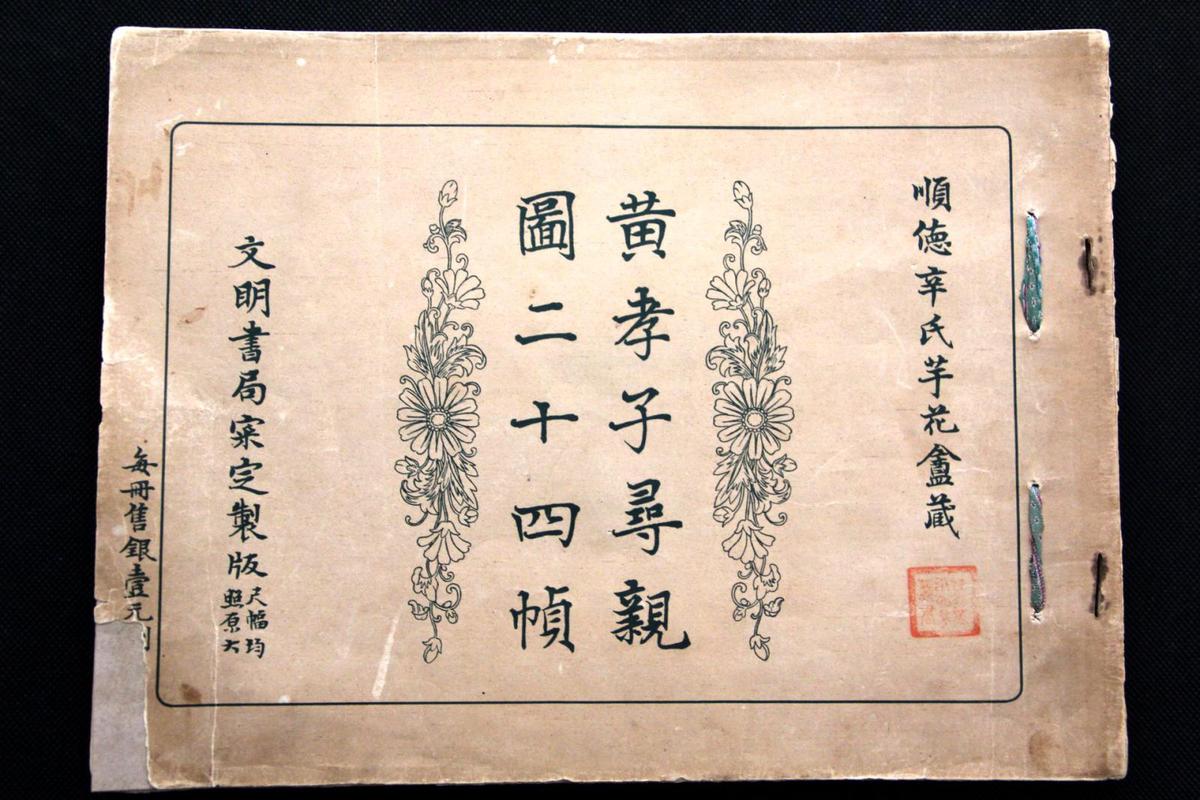 順德辛氏芋花盦藏
黃孝子尋親
圖二十四幀
文明書局寀定製版
尺幅均
照原大
每冊售銀壹元